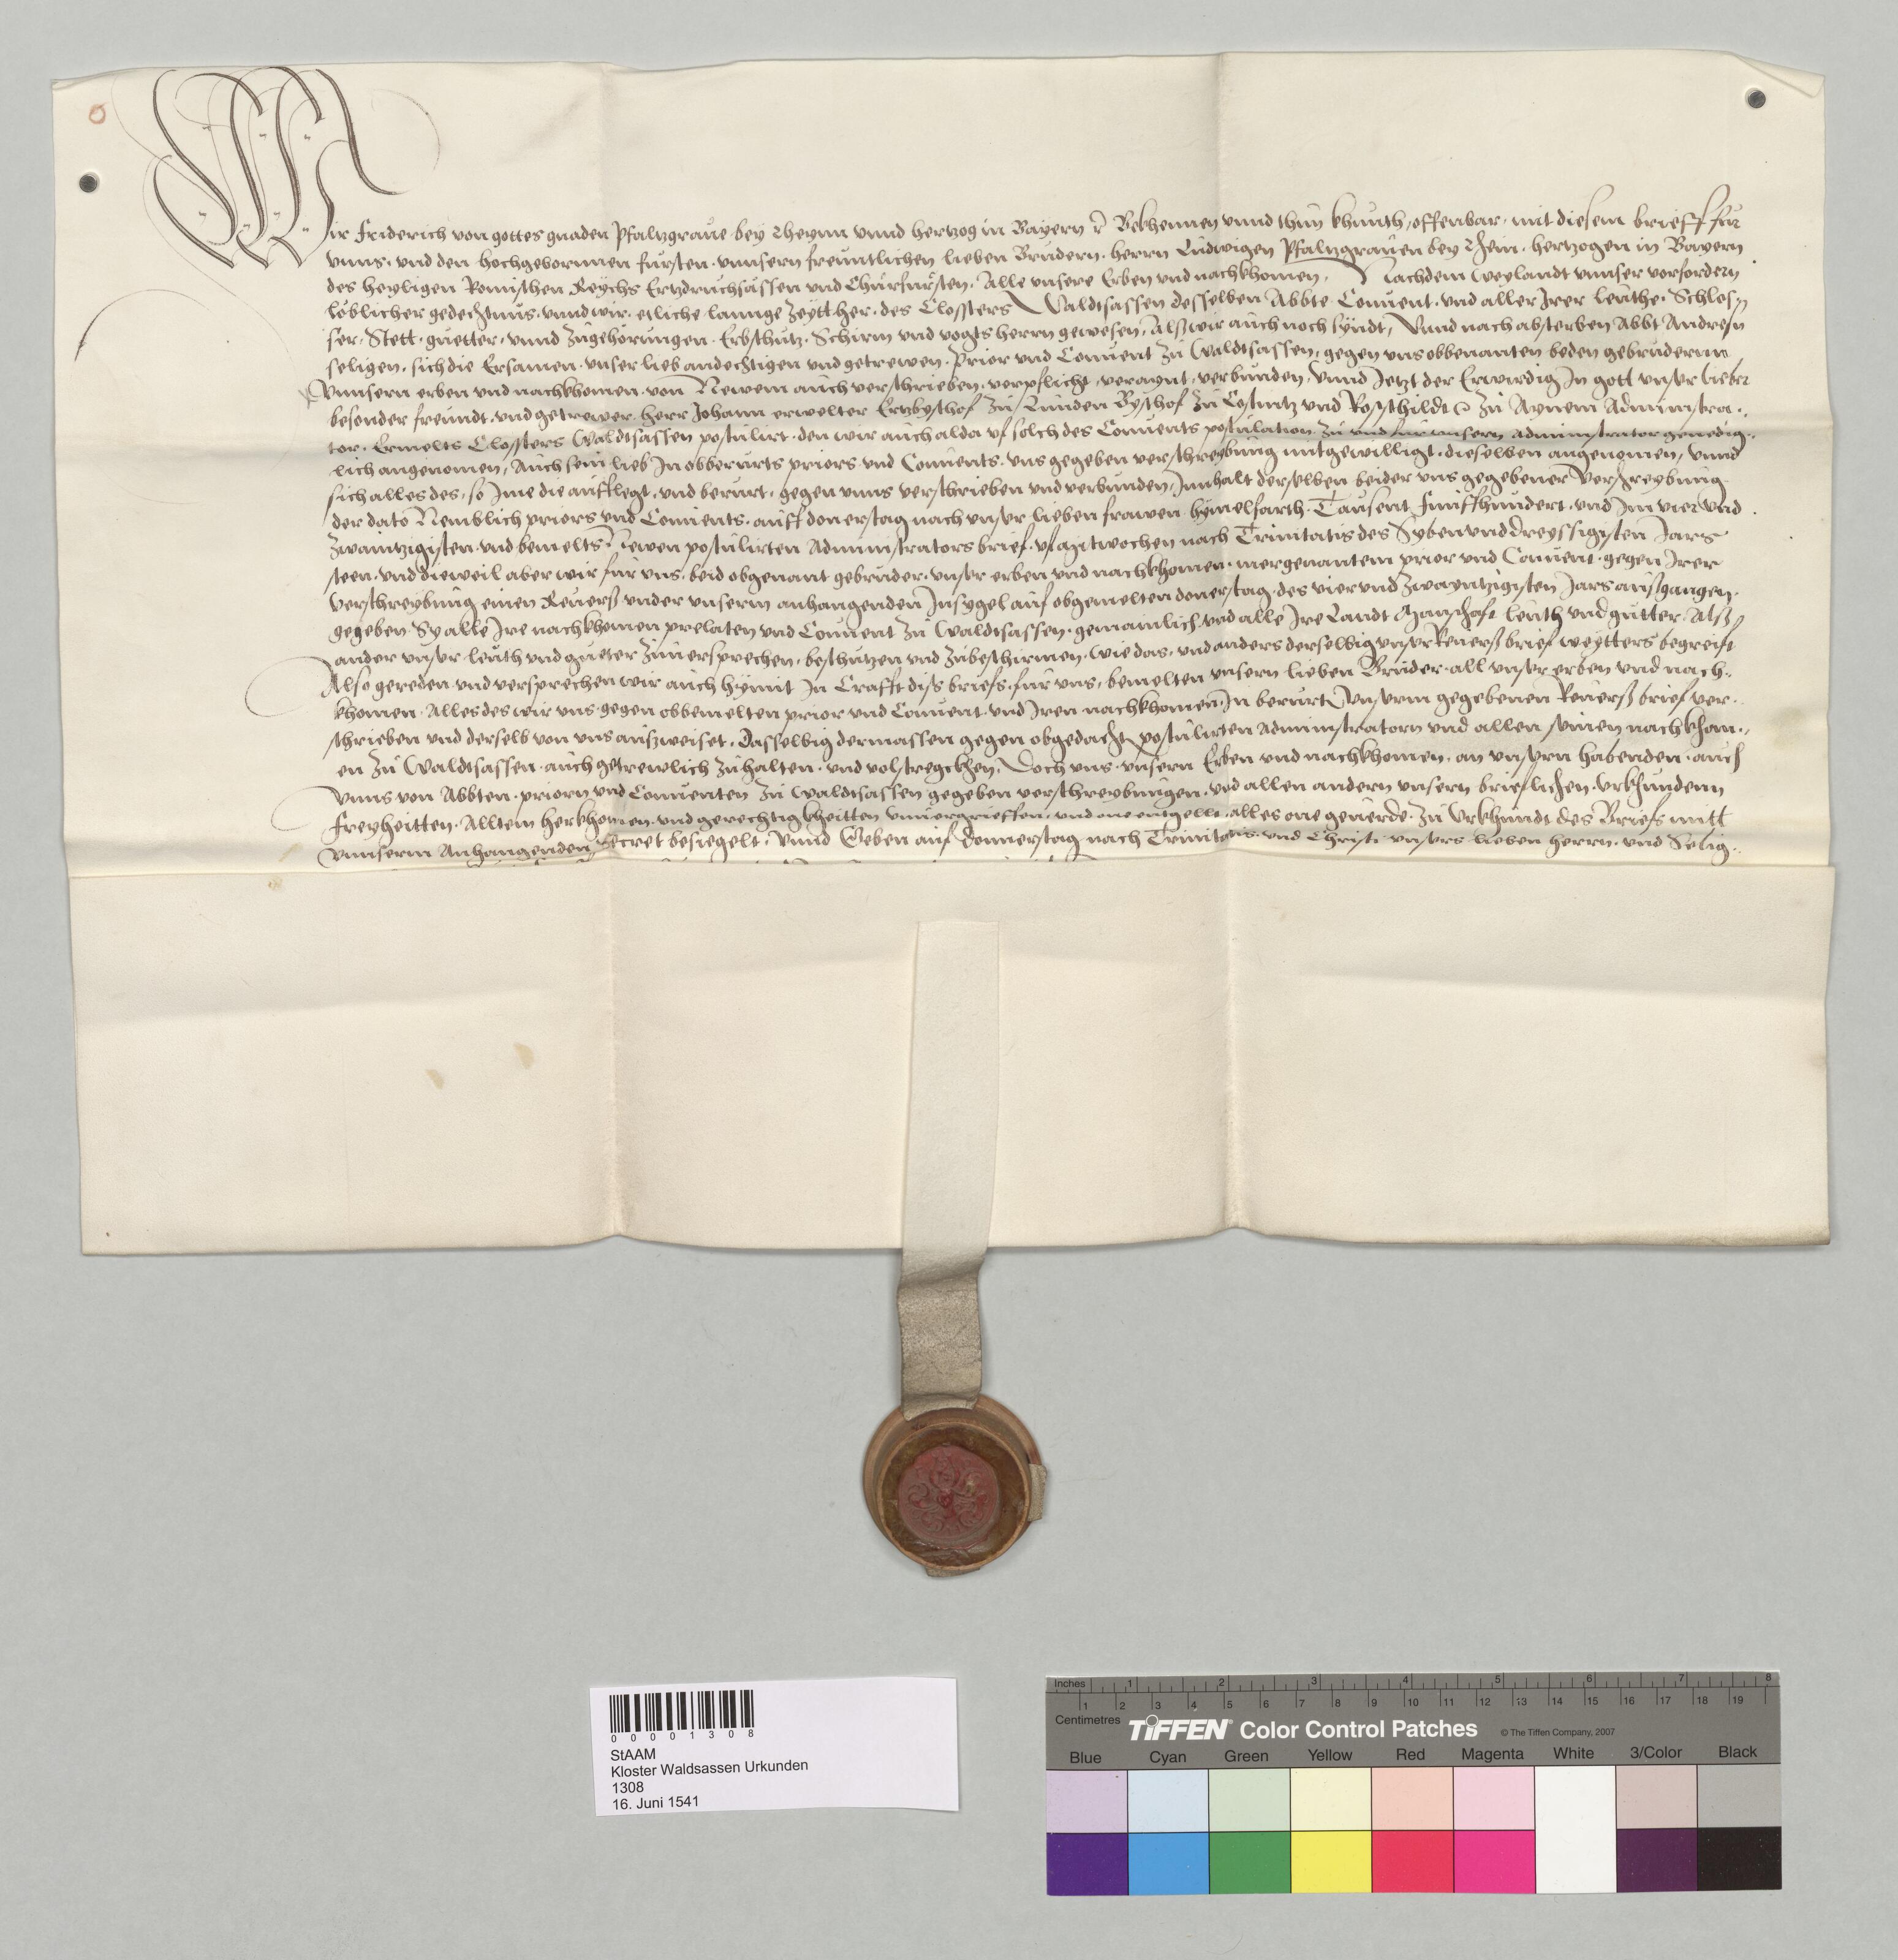 Wir Friderich von gottes gnaden Pfaltzgraue bey Rheynn vnnd hertzog in Bayern Bekhennen vnnd thun khunth offenbar mit diesem brieff fur
vnns vnd den hochgebornnen fursten vnnsern freuntlichen lieben Brudern herrn Ludwigen Pfaltzgrauen bey Rhein hertzogen in Bayern
des heyligen Romischen Reychs Ertzdruchsassen vnd Churfursten Alle vnsere Erben vnd nachkhomen Nachdem weylandt vnnser vorfordern
loblicher gedechtnus vnnd wir etliche lannge Zeytt her des Closters Waldtsassen desselben Abbte Conuent vnd aller Irer leuthe Schlos
ser Stett guetter vnnd Zugehorungen Erbschutz Schirm vnd vogts herrn gewesen Alß wir auch noch syndt Vnnd nach absterben Abbt Andresn
seligen sich die Ersamen vnser lieb andechtigen vnd getrewen Prior vnd Conuent Zu Waldtsassen gegen vns obbenanten beden gebrudernn
Vnnsern erben vnd nachkhomen von Newem auch verschrieben verpflicht veraynt verbunden Vnnd Jetzt der Erwirdig In gott vnser lieber
besonder freundt vnd getrewer herr Johann erwelter Ertzbyschof Zu Lunden Byschof Zu Costnitz vnd Rosschildt Zu Aynem Administra
tor Ermelts Closters Waldtsassen postulirt den wir auch alda vf solch des Conuents postulation Zu vnd fur vnsern administrator genedig
lich angenomen Auch sein lieb In obberurts priors vnd Conuents vns gegeben verschreybung mitgewilligt dieselben angenomen vnnd
sich alles des so Ime die aufflegt vnd berurt gegen vnns verschrieben vnd verbunden Innhalt derselben beider vns gegebener Verschreybung
der dato Nemblich priors vnd Conuents auff donerstag nach vnser lieben frawen hymelfarth Tausent funffhundert vnd Im vier vnd
Zwaintzigisten vnd bemelts Newen postulirten Administrators brief vf mitwochen nach Trinitatis des Syben vnd dreyssigisten Jars
steen vnd dieweil aber wir fur vns beid obgenant gebruder vnser erben vnd nachkhomen mergenantem prior vnd Conuent gegen Irer
Verschreybung einen Reuerß vnder vnserm anhangenden Insygel auf obgemelten donerstag des vier vnd Zwayntzigisten Jars außgangen
gegeben Sy alle Ire nachkhomen prelaten vnd Conuent Zu Waldtsassen gemainlich vnd alle Ire Landt Manschaft leuth vnd gutter Alß
ander vnser leuth vnd gueter Zuuersprechen beschutzen vnd Zubeschirmen wie das vnd anders derselbig vnser Reuerß brief weytters begreift
Also gereden vnd versprechen wir auch hymit In Crafft diß briefs fur vns bemelten vnsern lieben Bruder all vnser erben vnd nach
khomen Alles des wir vns gegen obbemelten prior vnd Conuent vnd Iren nachkhomen In berurt vnserm gegebenen Reuerß brief ver
schrieben vnd derselb von vns außweiset Dasselbig dermassen gegen obgedacht postulirten Administratorn vnd allen seinen nachkhom
en Zu Waldtsassen auch getrewlich Zuhalten vnd volstregckhen Doch vns vnsern Erben vnd nachkhomen an vnsern habenden auch
Vnns von Abbten priorn vnd Conuenten Zu Waldtsassen gegeben verschreybungen vnd allen andern vnsern brieflichen vrkhundenn
freyheitten Alltem herkhomen vnd gerechtigkheitten vnuergrieffen vnd one entgellt alles one geuerde Zu Vrkhundt des Briefs mitt
Vnnserm Anhangenden Secret besiegelt Vnnd Geben auf Donnerstag nach Trinitatis vnd Christi vnsers lieben herrn vnd Selig
00001308
StAAM
Kloster Waldsassen Urkunden
1308
16. Juni 1541
Inches 1 2 3 4 5 6 7 8
1 2 3 4 5 6 7 8 9 10 11 12 13 14 15 16 17 18 19
Centimetres
TIFFEN Color Control Patches © The Tiffen Company, 2007
Blue Cyan Green Yellow Red Magenta White 3/Color Black